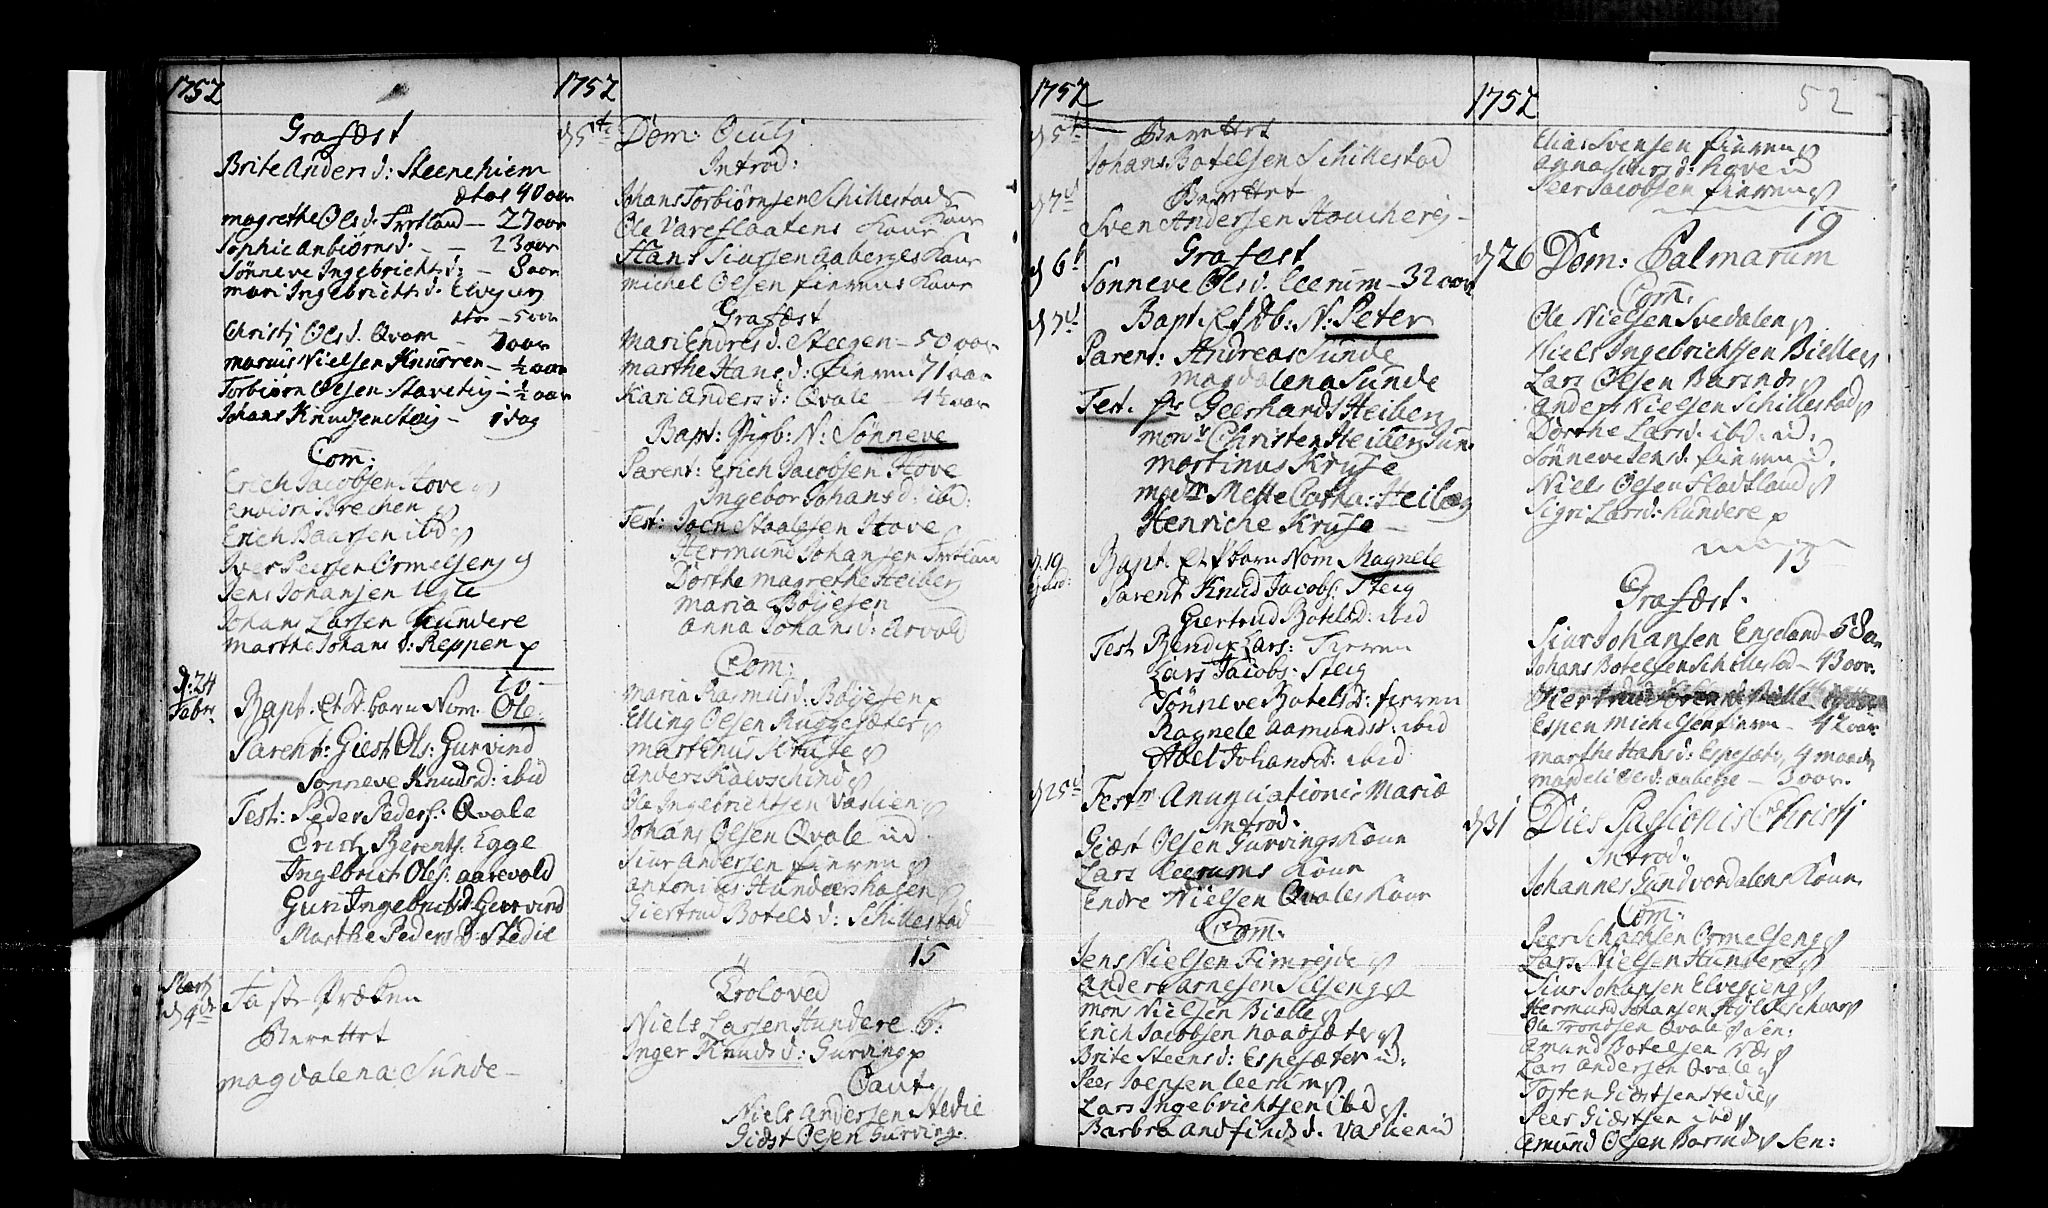 1752
Grafæst
Brite Anders d: Steenehiem
40 aar
magrethe Ols d: - 27 aar
Sophie Anbiørns d. - - 23 aar
Sønneve Ingebricht d: - 8 aar
mari Ingebrichts d. Elvejen
- 5 aar
Christj Ols d. Qvam - 7 aar
Nielsen Knurren - ½ aar
Torbiørn Olsen Stavetej - ½ aar
Johans Knudsen Steig - 1 dag
Com:
Erich Jacobsen Hove
Brechen
Erich Baarsen ibd
Iver Peersen Ormelseng
Jens Johansen
Johans Larsen Hundere
marthe Johans d: Reppen
10
d: 24 Febr.
Bapt. et barn Nom. Ole.
Parent: Giest Ols: Gurvind
Sønneve Knudsd: ibid
Test: Peder Peders: Qvale
Erich Berents. Egge
Ingebrict Ols: aarevold
Guri Ingebrictsd: Gurvind
Marthe Peders D: Stedie
Marti d 9de
Faste Præken
Berettet
magdalena Sunde -
1752
d 5te
Dom: Oculj
Introd:
Johans Torbiørnsen Schillestads
Ole Vareflaatens Kaar
Hans Siursen Aaberges Kaar
michel Olsen fimrens Kaar
Grafæst
Mari Endres d. Steegen - 50 aar
marthe Hans d: fimren 71 aar
Kari Anders d: Qvale - 4½ aar
Bapt: Pigb: N: Sønneve
Parent: Erich Jacobsen Hove
Ingebor Johans d: ibid:
Test: Joen Staalesen Hove
Hermund Johansen
Dorthe magrethe Heiberg
maria Böyesen
anna Johans d: Arvold
Com:
maria Rasmus d: Böyesen
Elling Olsen Ruggesæter
martinus Kruse
Anders Kalvschind
Ole Ingebrichtsen Vaslien
Johans Olsen Qvale id
Siur Andersen fimren
Antonius Hundershagen
Giertrud Botels d: Schillestad
15
Troloved
Niels Larsen Hundere
Inger Knuds d: Gurving
Caut.
Niels Andersen Stedie
Giæst Olsen Gurving.
1752
d 5te
Berettet
Johans Botelsen Schillestad
d 7d
Berettet
Sven Andersen
d 6t
Grafæst
Sønneve Ols d. Leerum - 32 aar
d 7d
Bapt. et Db: N: Peter
Parent: Andreas Sunde
magdalena Sunde
Test. Hr Geerhard Heiberg
monr Christen Heiberg
martinus Kruse
mad. Mette Catha: Heiberg
Henriche Kruse -
d. 19
Bapt. et barn Nom. Magnele
Parent Knud Jacobs: Steig
Giertrud Botelsd: ibid
Test Bendix Lars: Fimren
Lars Jacobs: Steig
Sønneve Botelsd: fimren
Ragnele aamundsd: ibid
Abel Johansd: ibid
d 25d
Festr Anunciationis Mariæ
Introd.
Giæst Olsen Gurvings Kaar
Lars Leerums Kaar
Endre Nielsen Qvales Kaar
Com:
Jens Nielsen Fimrejde
Anders Arnesen Selseng
Mons Nielsen Bielle
Erich Jacobsen
Brite Steens d: Espesæter id:
Peer Joensen Leerum
Lars Ingebrichtsen ibid
Barbra Andfinds d. Vaslien id
1752
52
Elias Svensen fimren
Anna Siurs d: Hove id
Peer Jacobsen fimren
19
d 26
Dom: Palmarum
Com:
Ole Nielsen Svedalen
Niels Ingebrichtsen Bielle
Lars Olsen Barsnes
Anders Nielsen Schillestad
Dorthe Lars d: ibd. id.
Sønneve Jens d: fimren id.
Niels Olsen Fladtland
Sigri Lars d: Hundere
13
Grafæst.
Siur Johansen Engeland - 58 aar
Johans Botelsen Schillestad - 43 aar.
Espen Michelsen fimren - 42 aar
marthe Hans d: Espesæt: 4 maaned
- 3 aar.
d 31
Dies Passionis Christj
Introd.
Johannes Gundvordalens Kaar
Com:
Peer Ormelseng
Lars Nielsen Hundere
Siur Johansen Elvejeng
Hermund Johansen
Ole Trondsen Qvale Sen:
Amund Botelsen Næs
Lars Andersen Qvale
Tosten Giæstsen Stedie
Peer Giæstsen ibd
Amund Olsen Barsnes Sen: